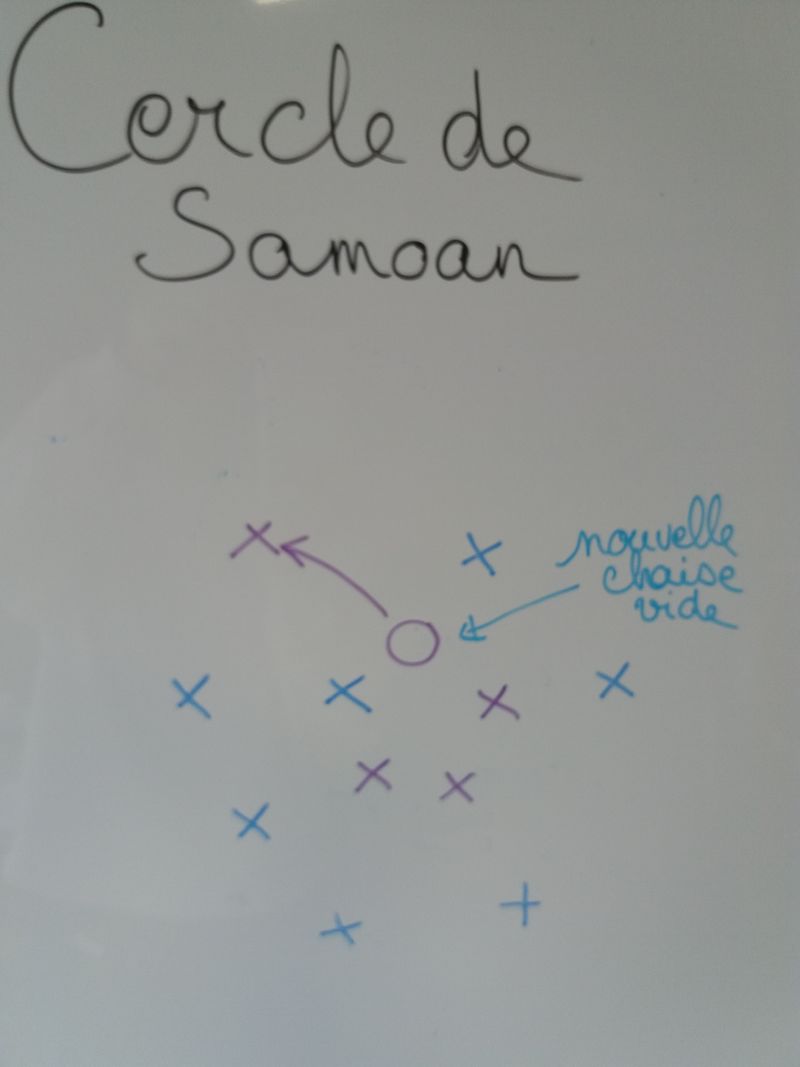 Cercle de
Samoan
nouvelle
chaise
vide